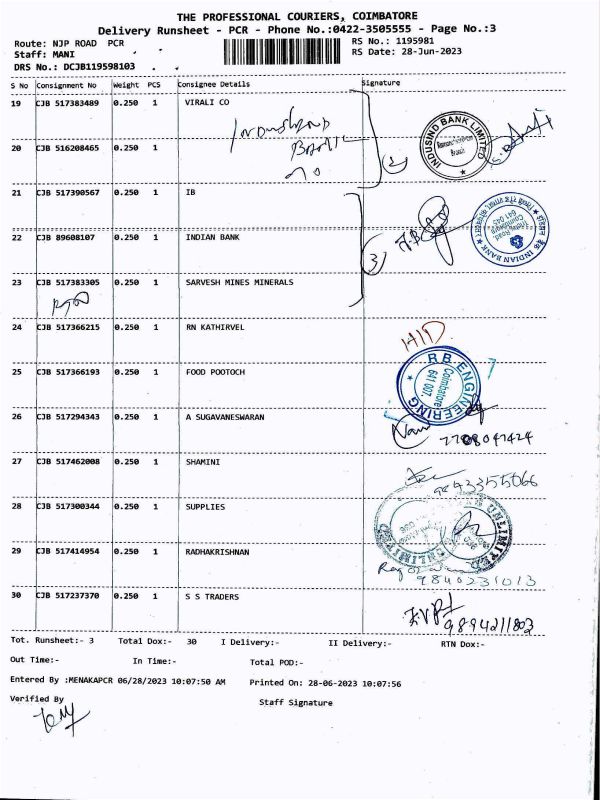 THE PROFESSIONAL COURIERS, COIMBATORE
Delivery Runsheet - PCR - Phone No.:0422-3505555 - Page No.:3
Route: NJP ROAD PCR
RS No.: 1195981
Staff: MANI
RS Date: 28-Jun-2023
DRS No.: DCJB119598103
S No Consignment No Weight PCS Consignee Details Signature
19 CJB 517383489 0.250 1 VIRALI CO
INDUSIND BANK LIMITED
Branch
20 CJB 516208465 0.250 1
21 CJB 517390567 0.250 1 IB
INDIAN BANK
Road
Coimbatore
641 045
22 CJB 89608107 0.250 1 INDIAN BANK
23 CJB 517383305 0.250 1 SARVESH MINES MINERALS
24 CJB 517366215 0.250 1 RN KATHIRVEL
HID
R B ENGINEERING
Coimbatore
641 007.
25 CJB 517366193 0.250 1 FOOD POOTOCH
26 CJB 517294343 0.250 1 A SUGAVANESWARAN
7708047424
27 CJB 517462008 0.250 1 SHAMINI
9893355066
28 CJB 517300344 0.250 1 SUPPLIES
UNLIMITED
29 CJB 517414954 0.250 1 RADHAKRISHNAN
9840231013
30 CJB 517237370 0.250 1 S S TRADERS
9894211803
Tot. Runsheet:- 3 Total Dox:- 30 I Delivery:- II Delivery:- RTN Dox:-
Out Time:- In Time:- Total POD:-
Entered By :MENAKAPCR 06/28/2023 10:07:50 AM Printed On: 28-06-2023 10:07:56
Verified By Staff Signature